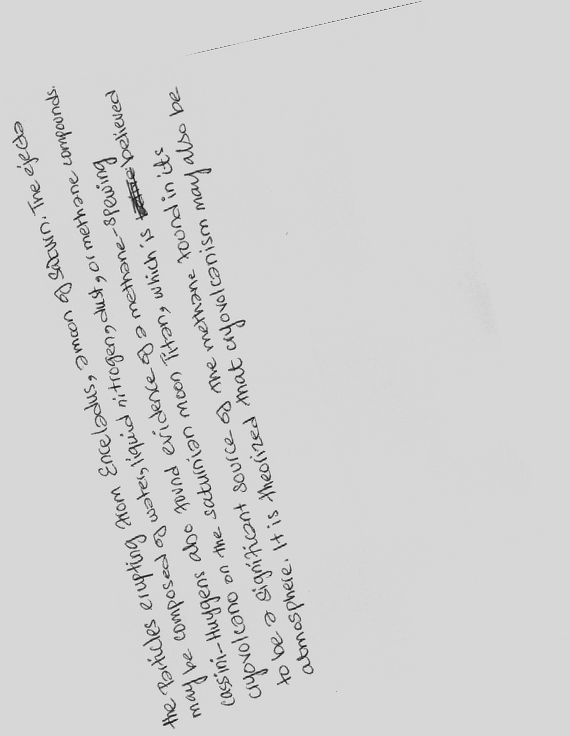 the Particles erupting from Enceladus, a moon of Saturn. The ejecta
may be composed of water, liquid nitrogen, dust, or methane compounds.
cassini-Huygens also found evidence of a methane-spewing
cryovolcano on the saturnian moon Titan, which is believed
to be a significant source of the methane found in its
atmosphere. It is theorized that cryovolcanism may also be